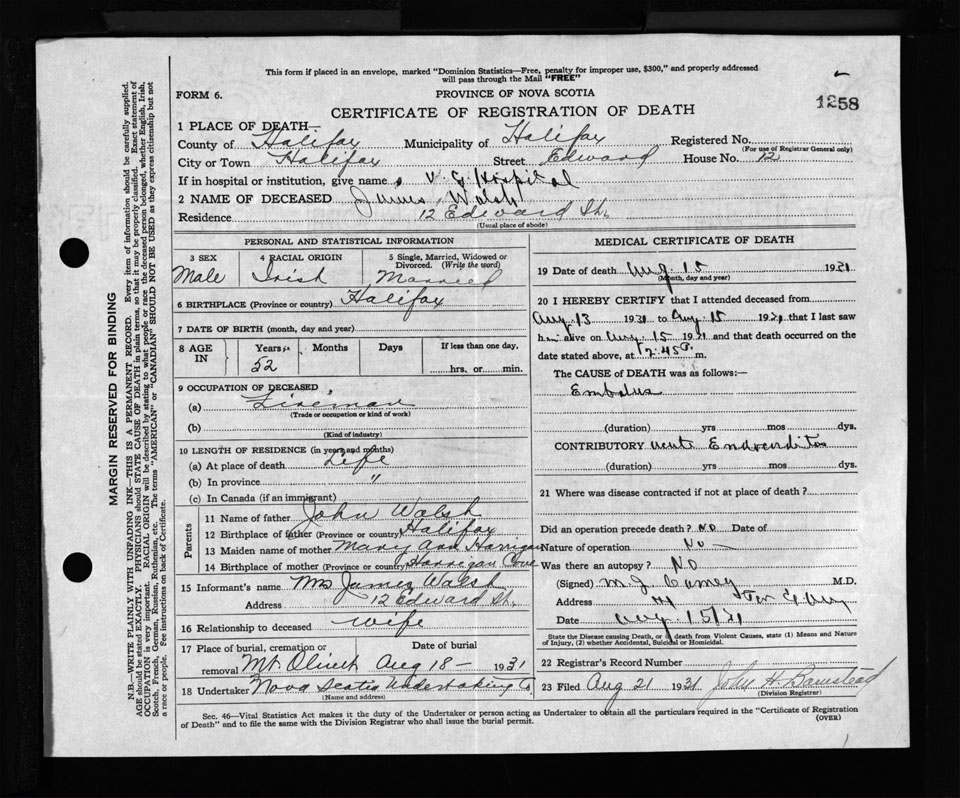 This form if placed in an envelope, marked "Dominion Statistics—Free, penalty for improper use, $300," and properly addressed
will pass through the Mail "FREE"
FORM 6.
PROVINCE OF NOVA SCOTIA
1258
CERTIFICATE OF REGISTRATION OF DEATH
1 PLACE OF DEATH—
County of Halifax Municipality of Halifax Registered No.
(For use of Registrar General only)
City or Town Halifax Street Edward House No. 12
If in hospital or institution, give name V. G. Hospital
2 NAME OF DECEASED James Walsh
Residence 12 Edward St.
(Usual place of abode)
PERSONAL AND STATISTICAL INFORMATION
3 SEX
Male
4 RACIAL ORIGIN
Irish
5 Single, Married, Widowed or
Divorced. (Write the word)
Married
6 BIRTHPLACE (Province or country) Halifax
7 DATE OF BIRTH (month, day and year)
8 AGE
IN
Years
52
Months
Days
If less than one day,
hrs. or min.
9 OCCUPATION OF DECEASED
(a) Fireman
(Trade or occupation or kind of work)
(b)
(Kind of industry)
10 LENGTH OF RESIDENCE (in years and months)
(a) At place of death Life
(b) In province "
(c) In Canada (if an immigrant)
Parents
11 Name of father John Walsh
12 Birthplace of father (Province or country) Halifax
13 Maiden name of mother Mary Ann Harrigan
14 Birthplace of mother (Province or country) Harrigan Cove
15 Informant's name Mrs James Walsh
Address 12 Edward St.
16 Relationship to deceased wife
17 Place of burial, cremation or Date of burial
removal Mt. Olivet Aug 18— 1931
18 Undertaker Nova Scotia Undertaking Co
(Name and address)
MEDICAL CERTIFICATE OF DEATH
19 Date of death Aug 15 1931
(Month, day and year)
20 I HEREBY CERTIFY that I attended deceased from
Aug. 13 1931 to Aug. 15 1931 that I last saw
him alive on Aug. 15 1931 and that death occurred on the
date stated above, at 2.45 P. m.
The CAUSE of DEATH was as follows:—
Embolus
(duration) yrs mos dys.
CONTRIBUTORY acute Endocarditis
(duration) yrs mos dys.
21 Where was disease contracted if not at place of death?
Did an operation precede death? No Date of
Nature of operation No —
Was there an autopsy? No
(Signed) M. J. Carney M.D.
Address
Date Aug. 15/31
State the Disease causing Death, or in death from Violent Causes, state (1) Means and Nature
of Injury, (2) whether Accidental, Suicidal or Homicidal.
22 Registrar's Record Number
23 Filed Aug 21 1931 John H. Barnstead
(Division Registrar)
Sec. 46—Vital Statistics Act makes it the duty of the Undertaker or person acting as Undertaker to obtain all the particulars required in the "Certificate of Registration
of Death" and to file the same with the Division Registrar who shall issue the burial permit.
(OVER)
MARGIN RESERVED FOR BINDING
N.B.—WRITE PLAINLY WITH UNFADING INK—THIS IS A PERMANENT RECORD. Every item of information should be carefully supplied.
AGE should be stated EXACTLY. PHYSICIANS should STATE CAUSE OF DEATH in plain terms, so that it may be properly classified. Exact statement of
OCCUPATION is very important. RACIAL ORIGIN will be described by stating to what people or race the deceased person belonged, whether English, Irish,
Scotch, French, German, Russian, Ruthenian, etc. The terms "AMERICAN" or "CANADIAN" SHOULD NOT BE USED as they express citizenship but not
a race or people. Fee instructions on back of Certificate.